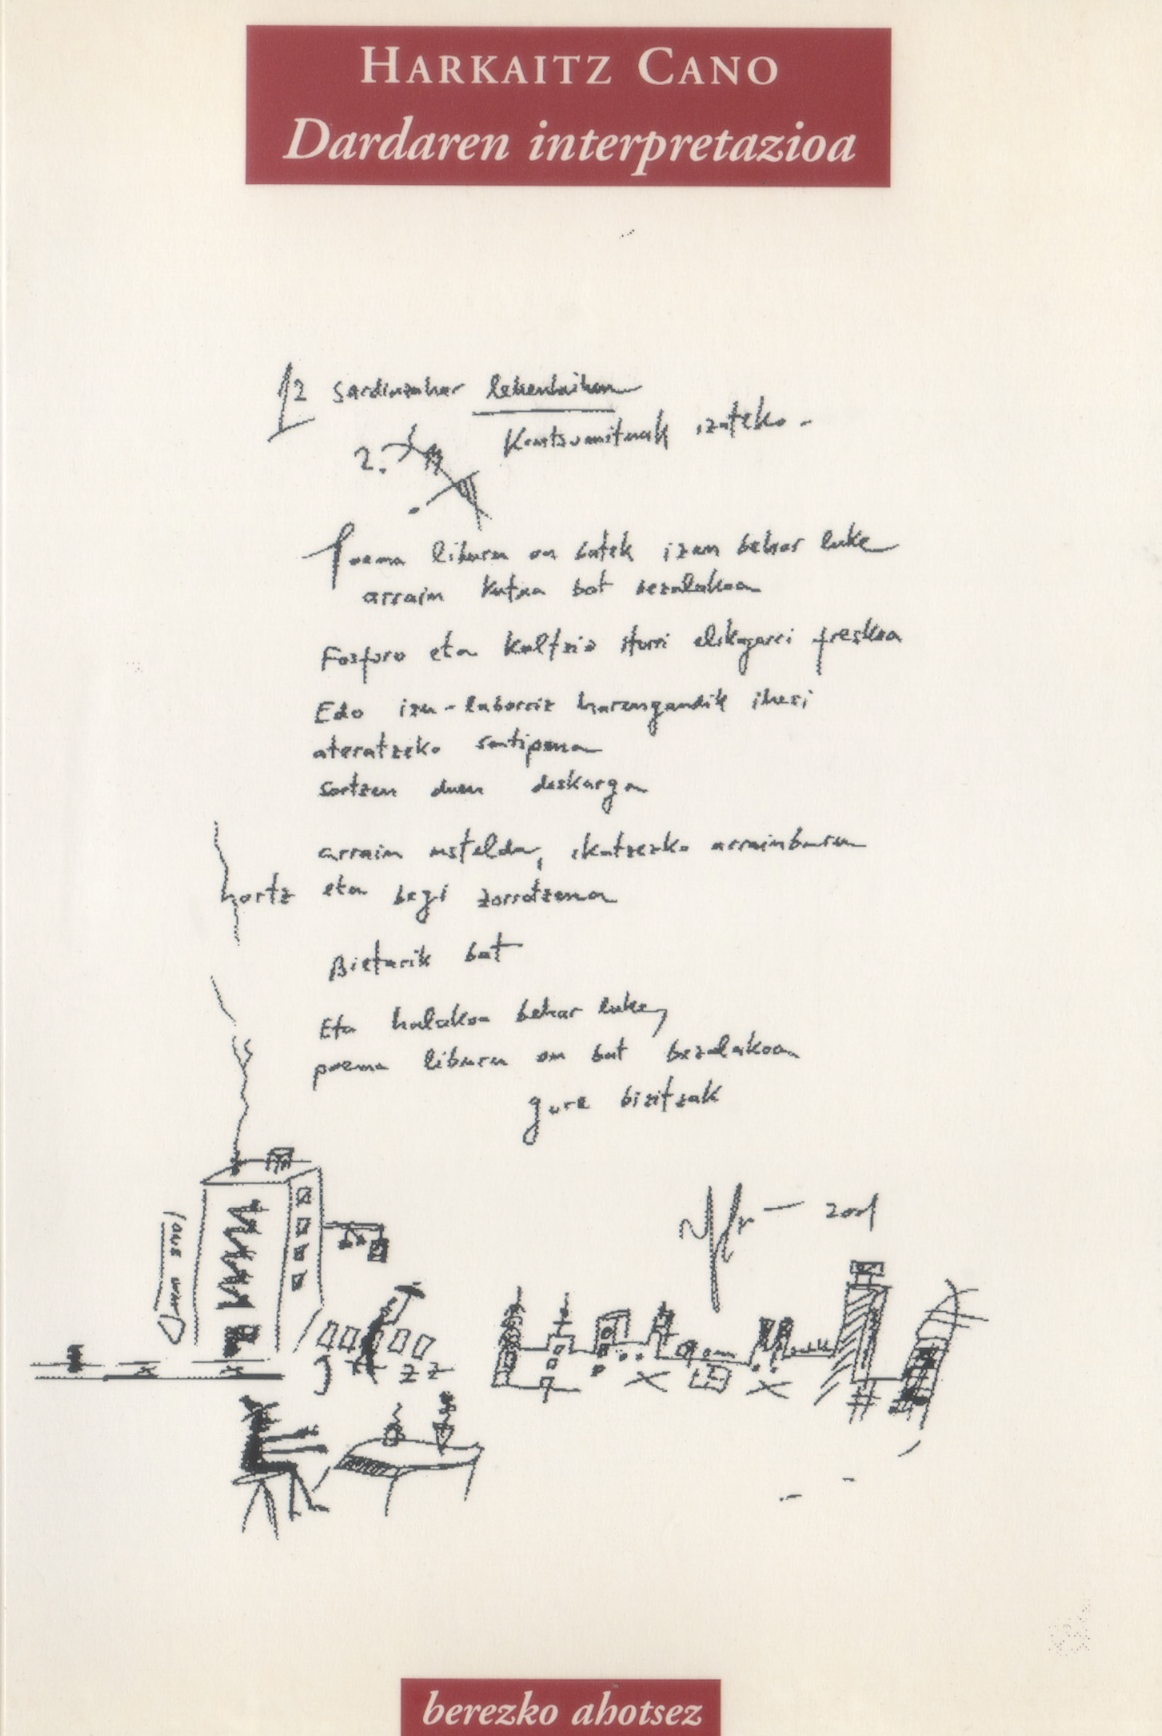 HARKAITZ CANO
Dardaren interpretazioa
12 sardinzahar lehenbaihen
Kontsumituak izateko.
2.
Poema liburu on batek izan behar luke
arrain kutxa bat bezalakoa
Fosforo eta kaltzio iturri elikagarri freskoa
Edo izu-laborriz harengandik ihesi
ateratzeko sentipena
sortzen duen deskarga
arrain ustelda, ikatzezko arrainburu
hortz eta begi zorrotzena
Bietarik bat
Eta halakoa behar luke,
poema liburu on bat bezalakoa
gure bizitzak
2001
berezko ahotsez